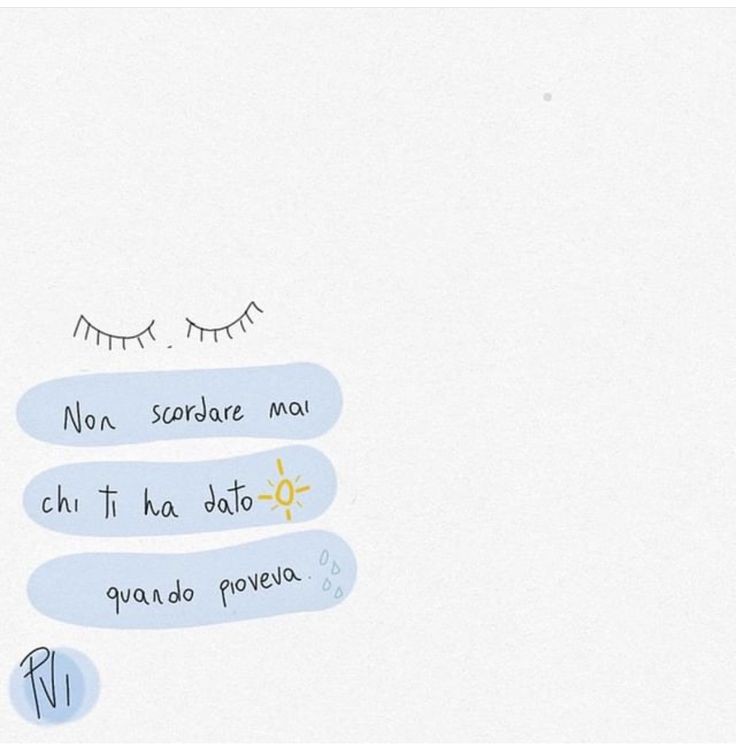 Non scordare mai
chi ti ha dato
quando pioveva.